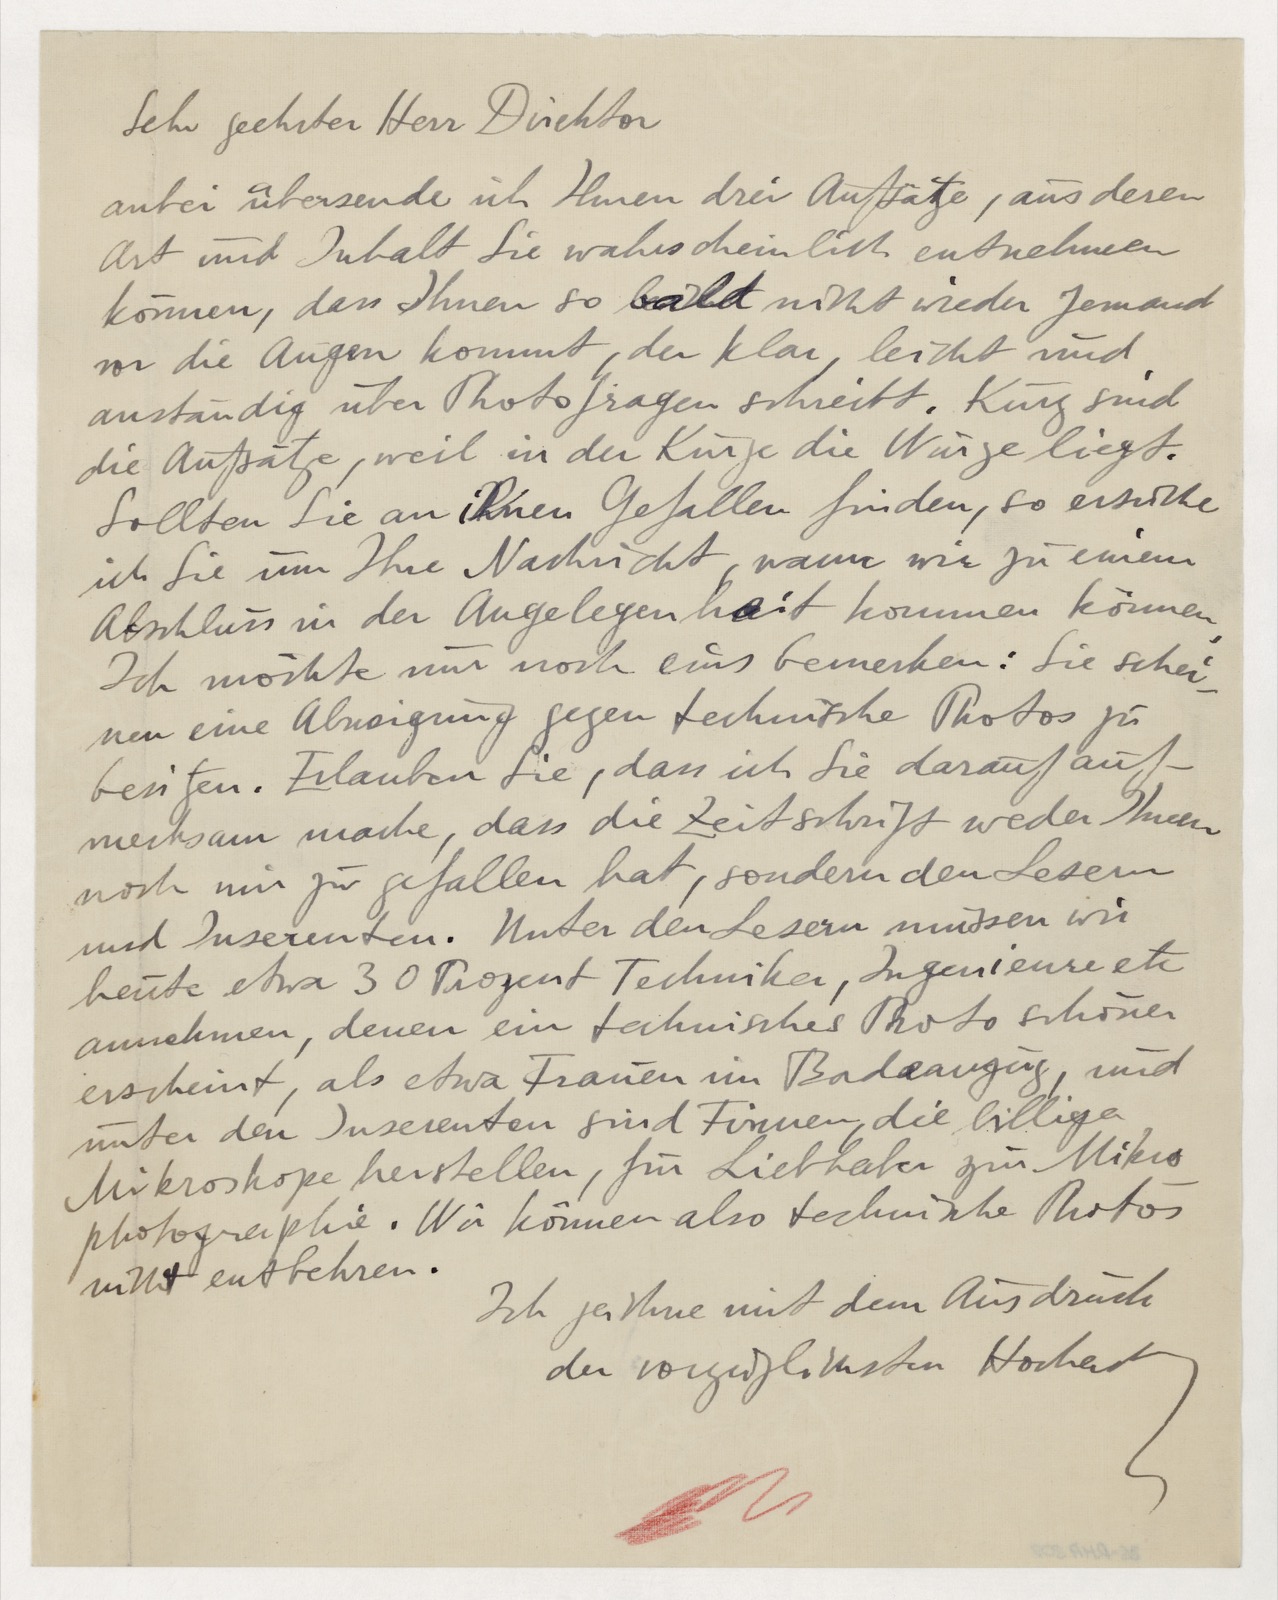 Sehr geehrter Herr Direktor
anbei übersende ich Ihnen drei Aufsätze, aus deren
Art und Inhalt Sie wahrscheinlich entnehmen
können, dass Ihnen so bald nicht wieder Jemand
vor die Augen kommt, der klar, leicht und
anständig über Photofragen schreibt. Kurz sind
die Aufsätze, weil in der Kürze die Würze liegt.
Sollten Sie an ihnen Gefallen finden, so ersuche
ich Sie um Ihre Nachricht, wann wir zu einem
Abschluss in der Angelegenheit kommen können.
Ich möchte nur noch eins bemerken: Sie schei-
nen eine Abneigung gegen technische Photos zu
besitzen. Erlauben Sie, dass ich Sie darauf auf-
merksam mache, dass die Zeitschrift weder Ihnen
noch mir zu gefallen hat, sondern den Lesern
und Inserenten. Unter den Lesern müssen wir
heute etwa 30 Prozent Techniker, Ingenieure etc
annehmen, denen ein technisches Photo schöner
erscheint, als etwa Frauen im Badeanzug, und
unter den Inserenten sind Firmen, die billige
Mikroskope herstellen, für Liebhaber zur Mikro
photographie. Wir können also technische Photos
nicht entbehren.
Ich zeichne mit dem Ausdruck
der vorzüglichsten Hochacht